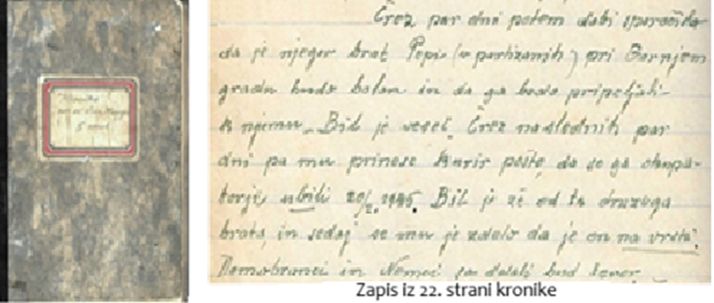 Kronika
Črez par dni potem dobi sporočilo
da je njegov brat Pepi (v partizanih) pri Gornjem
gradu hudo bolan in da ga bodo pripeljali
k njemu. Bil je vesel. Črez naslednih par
dni pa mu prinese kurir pošto, da so ga okupa-
torji ubili 20/2. 1945. Bil je že od ta druzega
brata, in sedaj se mu je zdelo da je on na vrsti.
Domobranci in Nemci so delali hud teror
Zapis iz 22. strani kronike